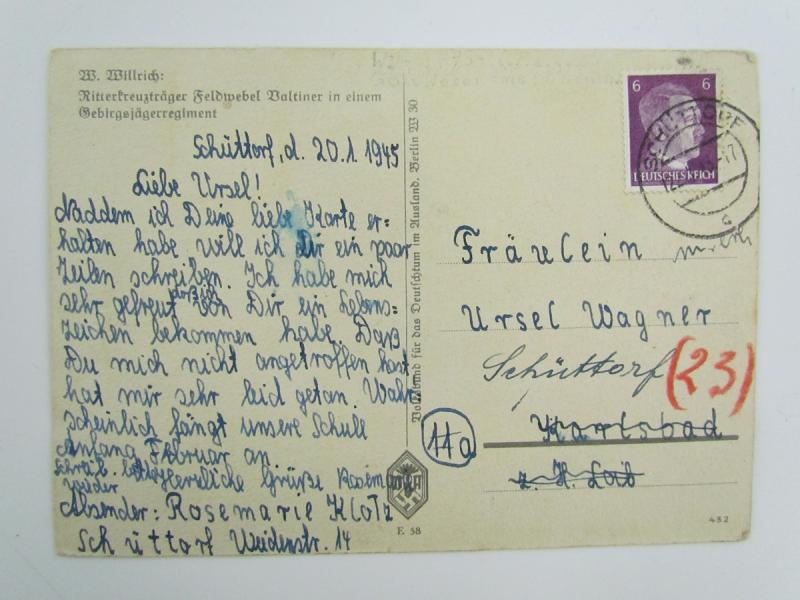 W. Willrich:
Ritterkreuzträger Feldwebel Valtiner in einem
Gebirgsjägerregiment
Schüttorf, d. 20.1.1945
Liebe Ursel!
Naddem ich Deine liebe Karte er:
halten habe will ich dir ein paar
Zeilen schreiben. Ich habe mich
sehr gefreut daß ich von Dir ein Lebens:
zeichen bekommen habe. Daß
Du mich nicht angetroffen hast
hat mir sehr leid getan. Wahr
scheinlich fängt unsere Schule
Anfang Februar an
Schreib bald wieder
Herzliche Grüße Rosem
Absender: Rosemarie Klotz
Schüttorf Weidenstr. 14
Volksbund für das Deutschtum im Ausland. Berlin W 30
VDA
E 58
6 6
DEUTSCHES REICH
SCHÜTTORF
c
Fräulein
Ursel Wagner
Schüttorf (23)
11a
Karlsbad
z. H. Laib
432